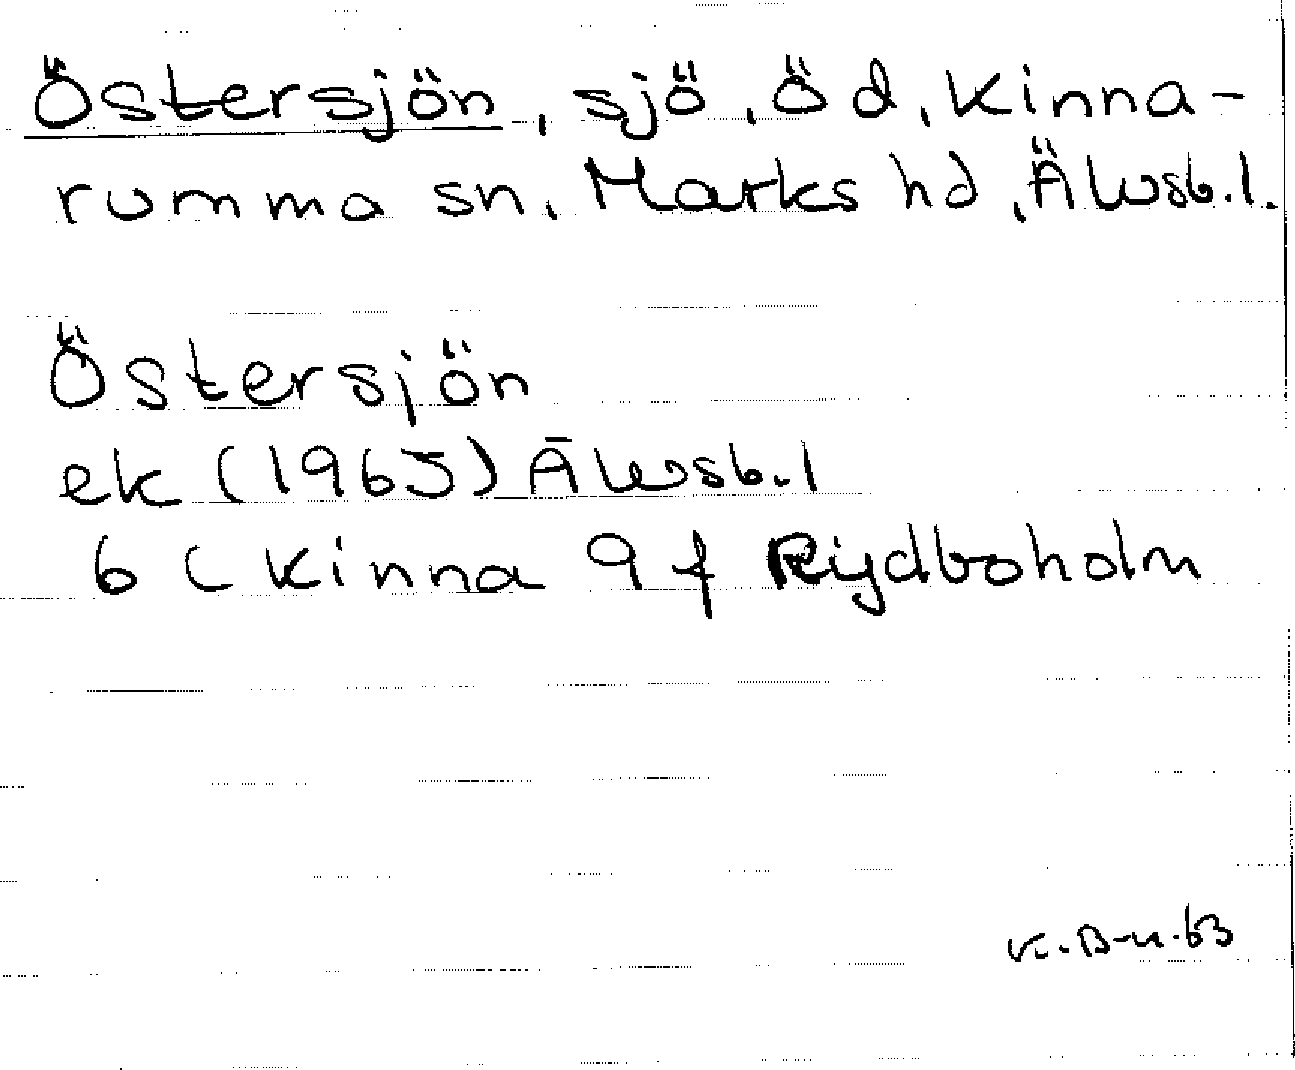 Östersjön, sjö, Öd, Kinna-
rumma sn, Marks hd, Älvsb.l.
Östersjön
ek (1965) Älvsb.l
6 C Kinna 9 f Rydboholm
K.B-n.63